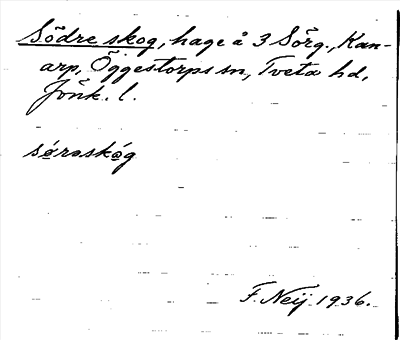 Södre skog, hage å 3 Sörg., Kan-
arp, Öggestorps sn, Tveta hd,
Jönk. l.
sǿrəskǿg
F. Neij 1936.